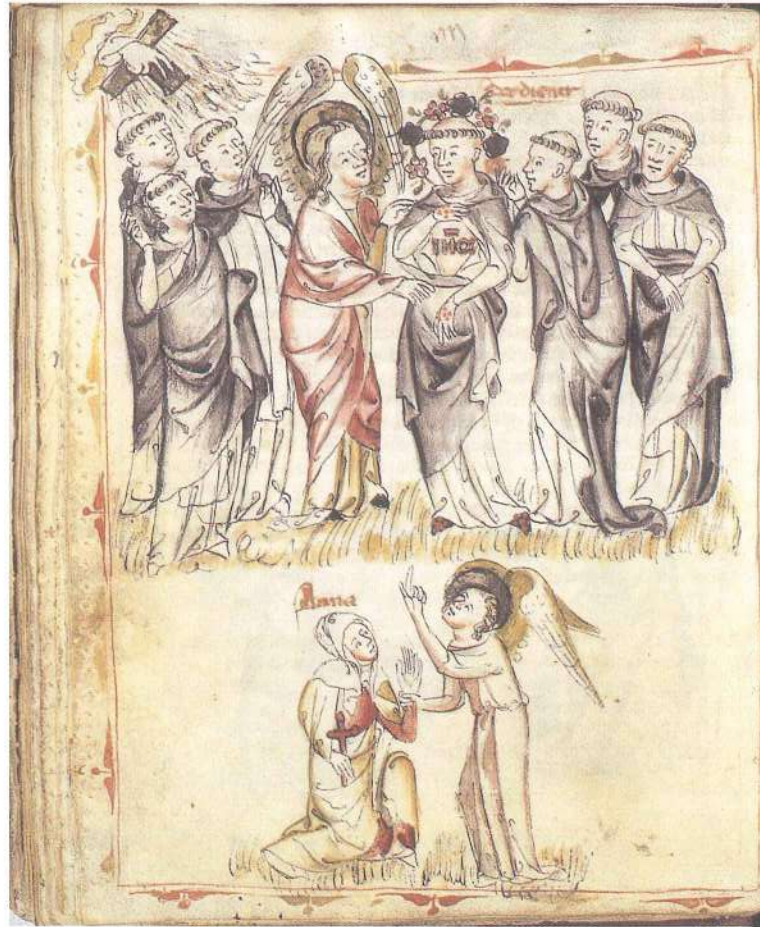 der diener
IHC
Anna